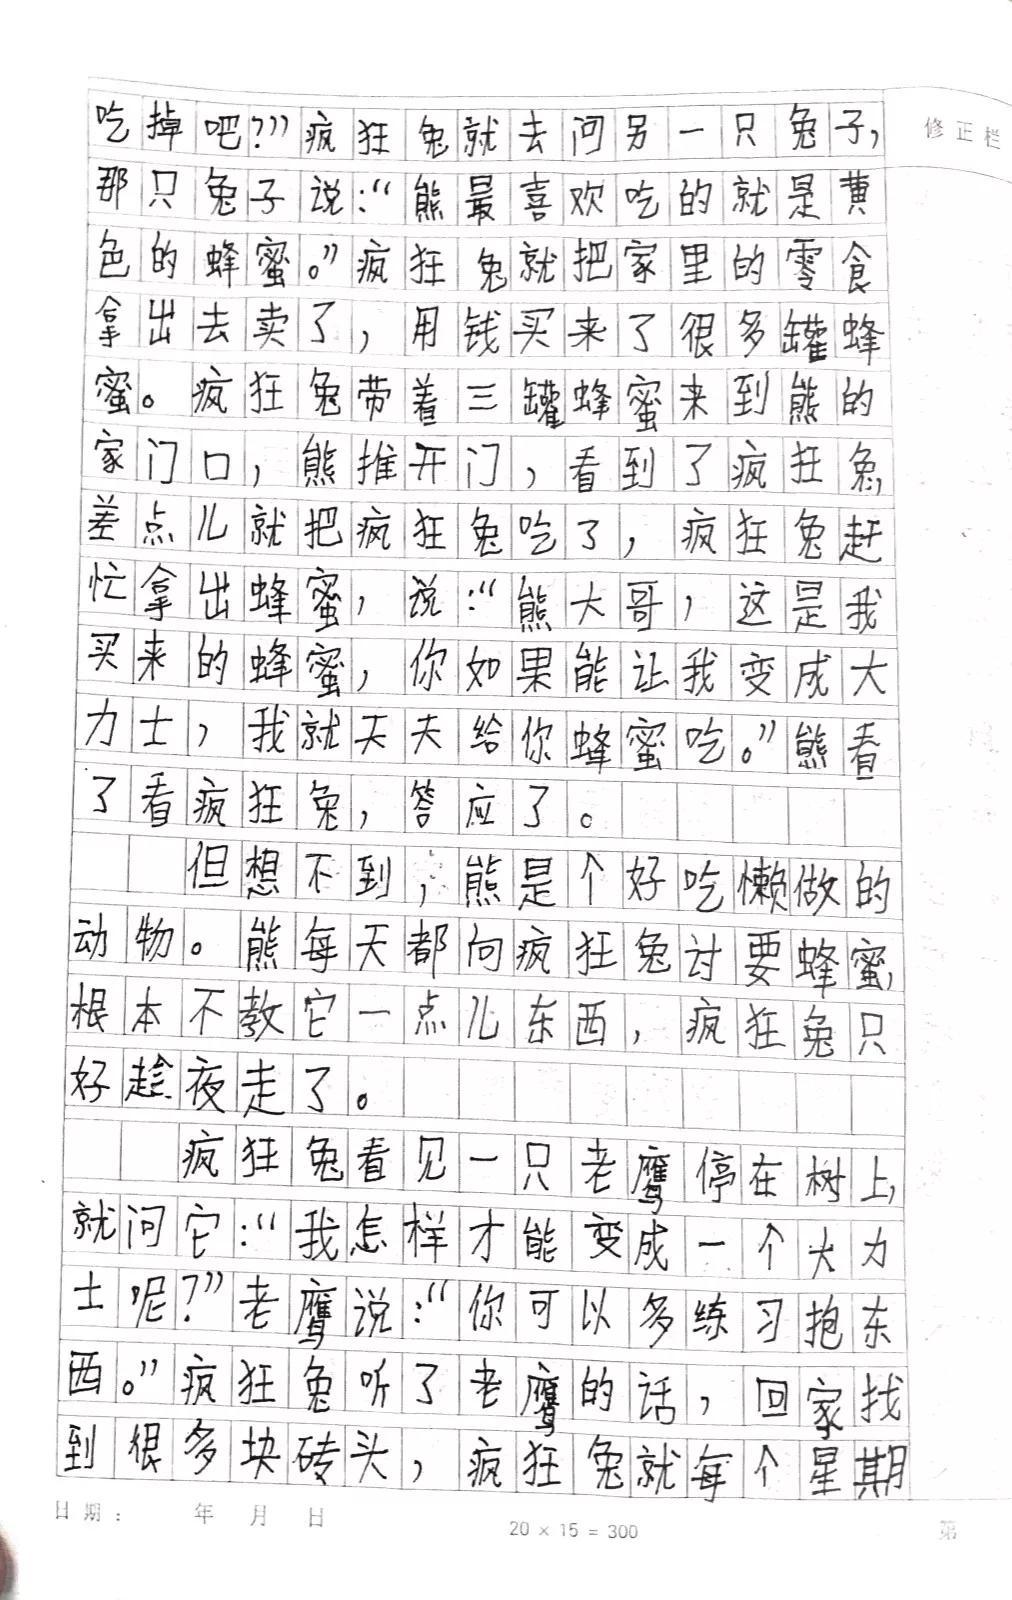 修正栏
吃掉吧?”疯狂兔就去问另一只兔子,
那只兔子说:“熊最喜欢吃的就是黄
色的蜂蜜。”疯狂兔就把家里的零食
拿出去卖了,用钱买来了很多罐蜂
蜜。疯狂兔带着三罐蜂蜜来到熊的
家门口,熊推开门,看到了疯狂兔,
差点儿就把疯狂兔吃了,疯狂兔赶
忙拿出蜂蜜,说:“熊大哥,这是我
买来的蜂蜜,你如果能让我变成大
力士,我就天天给你蜂蜜吃。”熊看
了看疯狂兔,答应了。
但想不到,熊是个好吃懒做的
动物。熊每天都向疯狂兔讨要蜂蜜,
根本不教它一点儿东西,疯狂兔只
好趁夜走了。
疯狂兔看见一只老鹰停在树上,
就问它:“我怎样才能变成一个大力
士呢?”老鹰说:“你可以多练习抱东
西。”疯狂兔听了老鹰的话,回家找
到很多块砖头,疯狂兔就每个星期
日期: 年 月 日
20 × 15 = 300
第